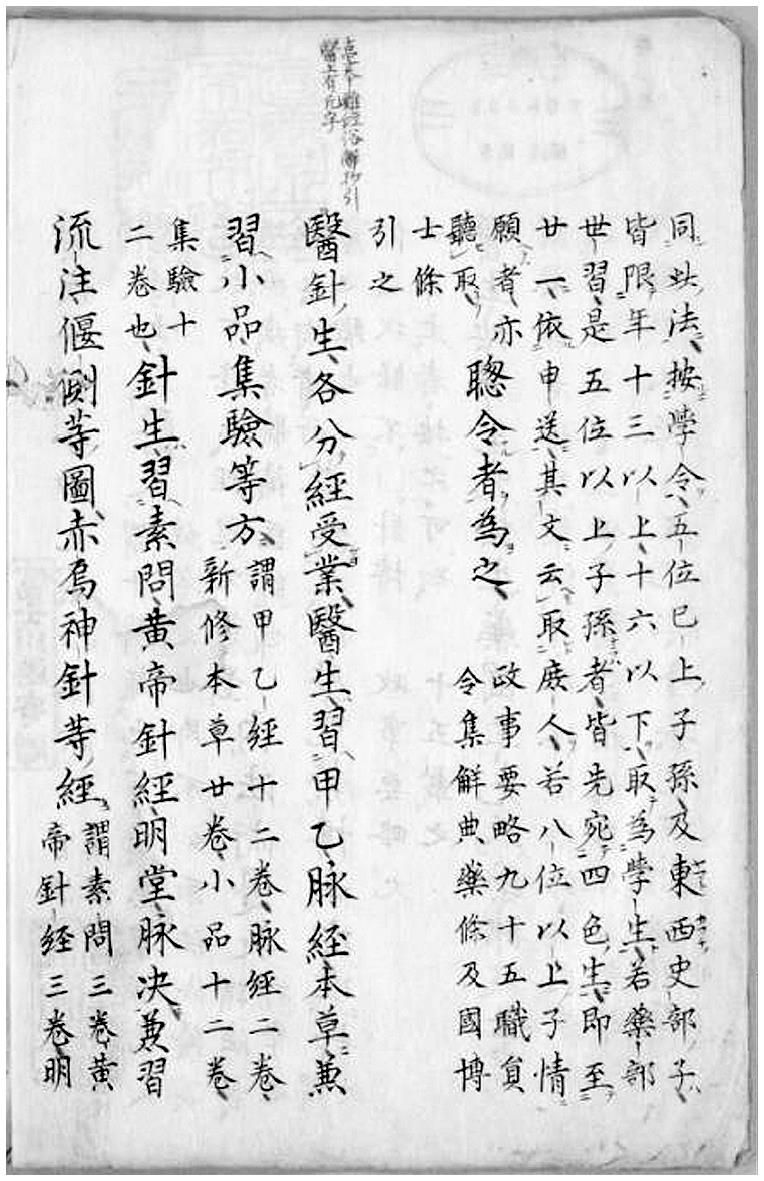 同此法按學令五位已上子孫及東西史部子
皆限年十三以上十六以下取為學生若藥部
世習是五位以上子孫者皆先宛四色生即至
廿一依申送其文云取庶人若八位以上子情
願者亦
聽取
聰令者為之
政事要略九十五職員
令集解典藥條及國博
士條
引之
本難經俗解抄引
醫上有凡字
醫針生各分經受業醫生習甲乙脉經本草兼
習小品集驗等方
謂甲乙經十二卷脉經二卷
新修本草廿卷小品十二卷
集驗十
二卷也
針生習素問黃帝針經明堂脉決兼習
流注偃側等圖赤烏神針等經
謂素問三卷黃
帝針經三卷明